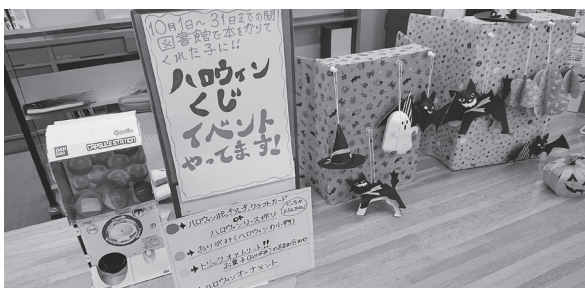 10月1日～31日までの間
図書館で本をかりて
くれた子に!!
ハロウィン
くじ
イベント
やってます!
BANDAI
CAPSULE STATION
ハロウィンポップアップクラフトカード
or
ハロウィンリース作り
おりがみ(ハロウィンの小物)
トリックオアトリート!!
ハロウィンオーナメント